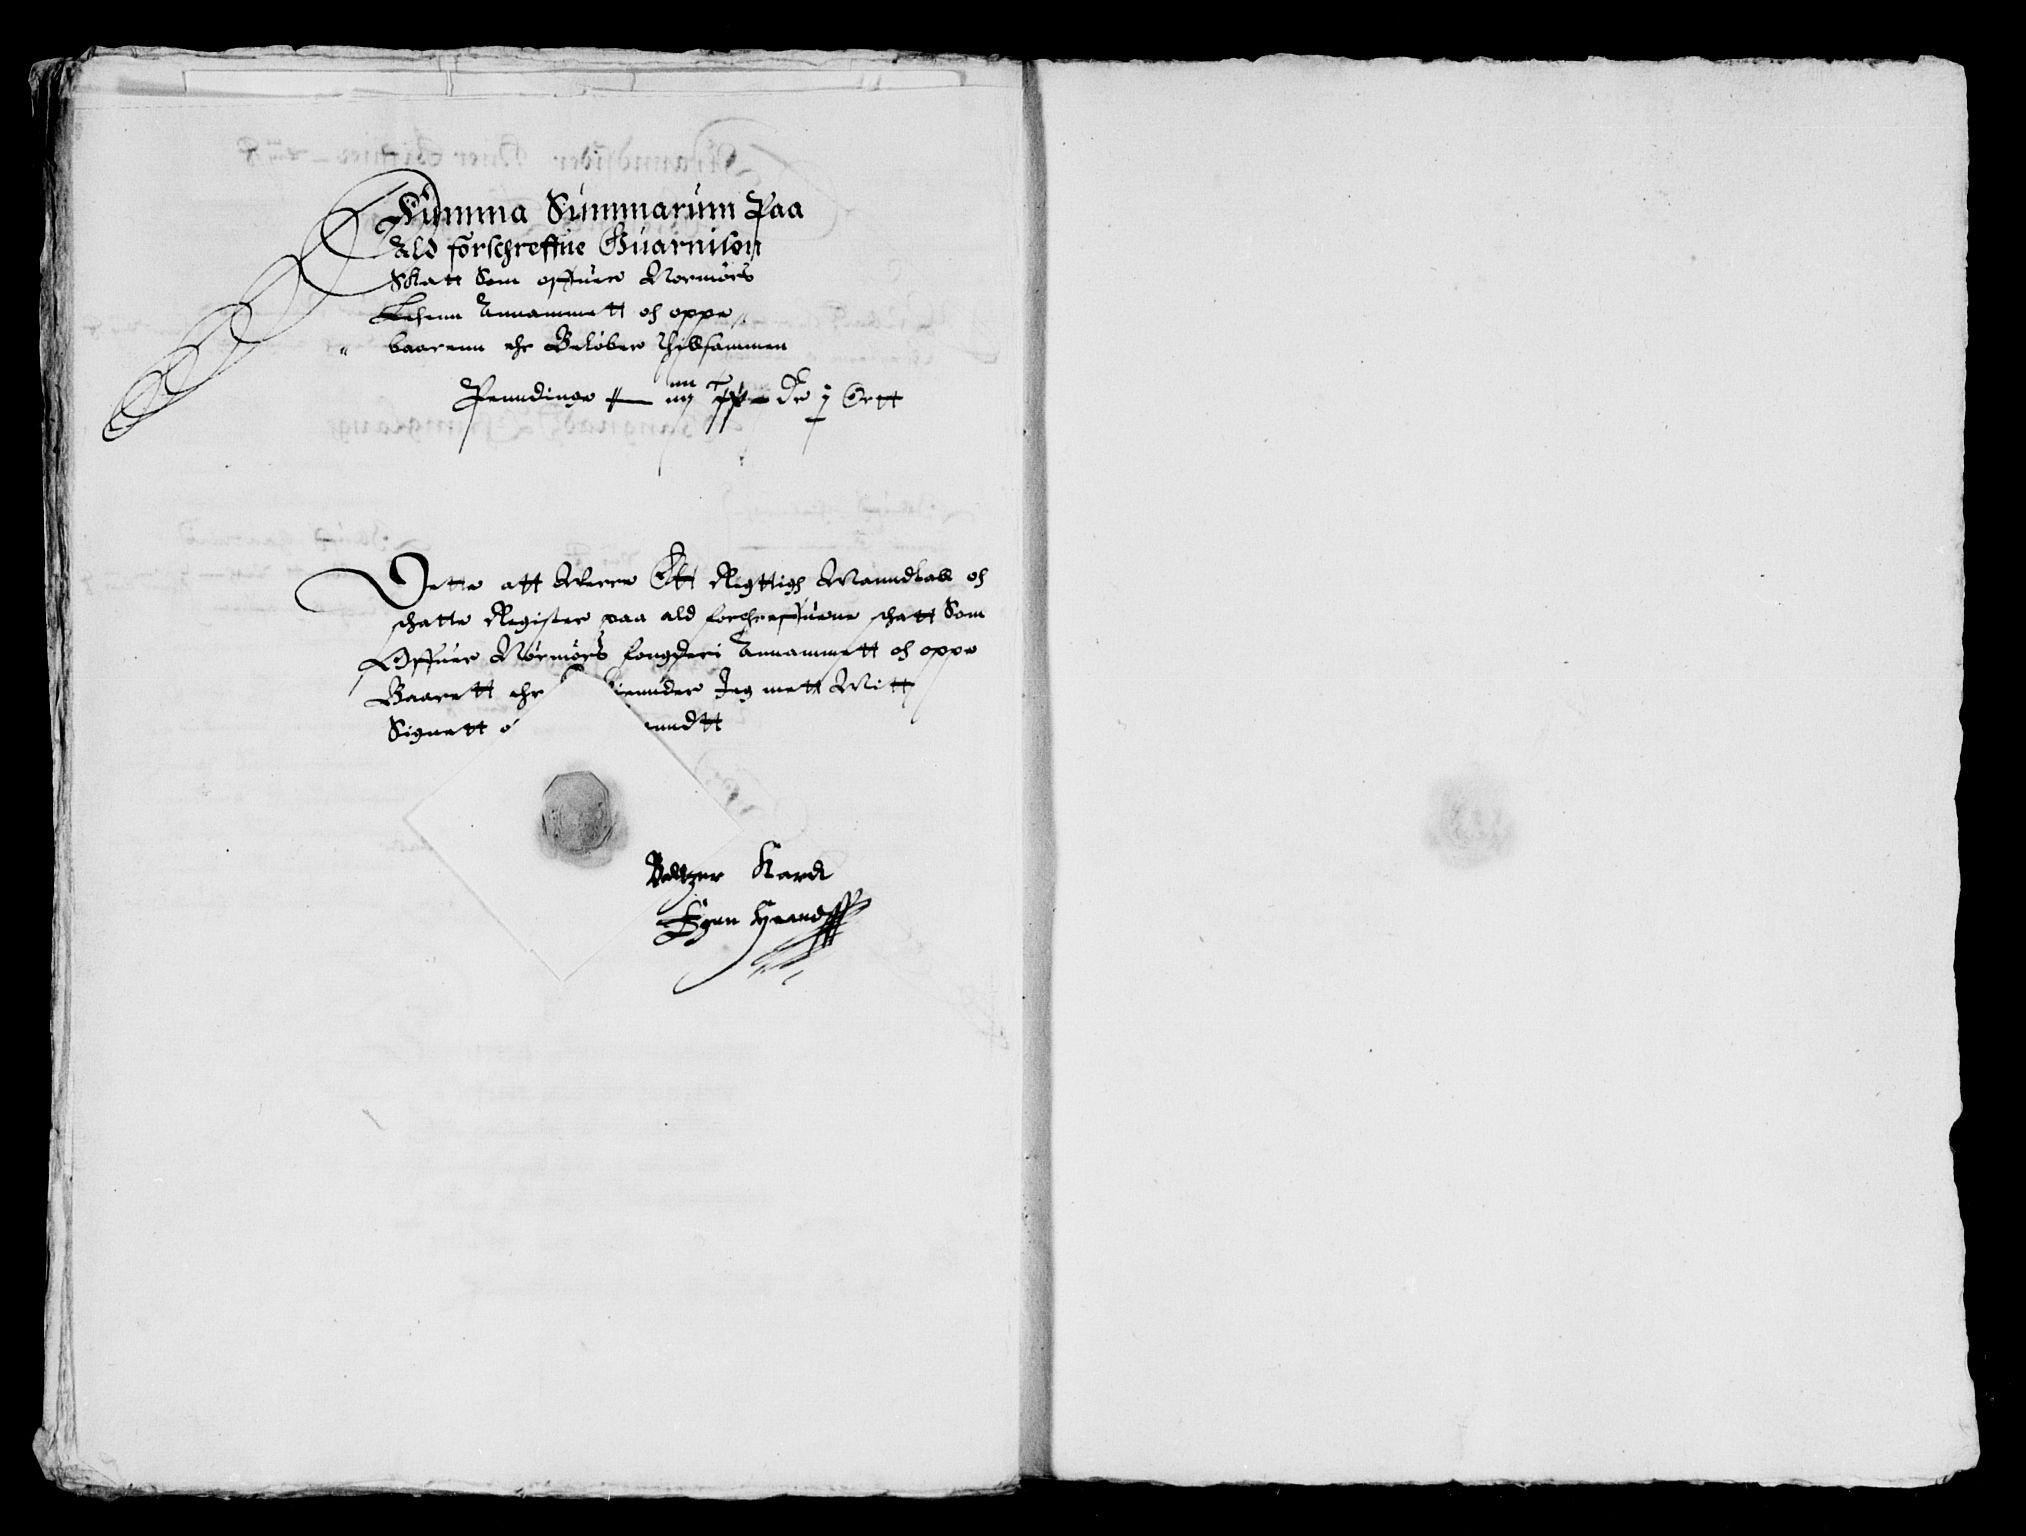 Summa Summarum Paa
Ald forschreffne Guarnison
Skatt Som offuer Normørs
Lehenn Annammett och oppe
baarenn ehr Beløber thilsammen
Penndinge
Ortt
Dette att Were Ett Rigttigh Manndtall och
schatte Register paa ald forschreffuene schatt Som
Offuer Nørmørs fougderi Annammett och oppe
Baarett ehr Jeg mett Mitt
Signett
Baltzer Kardt
Egen Haand